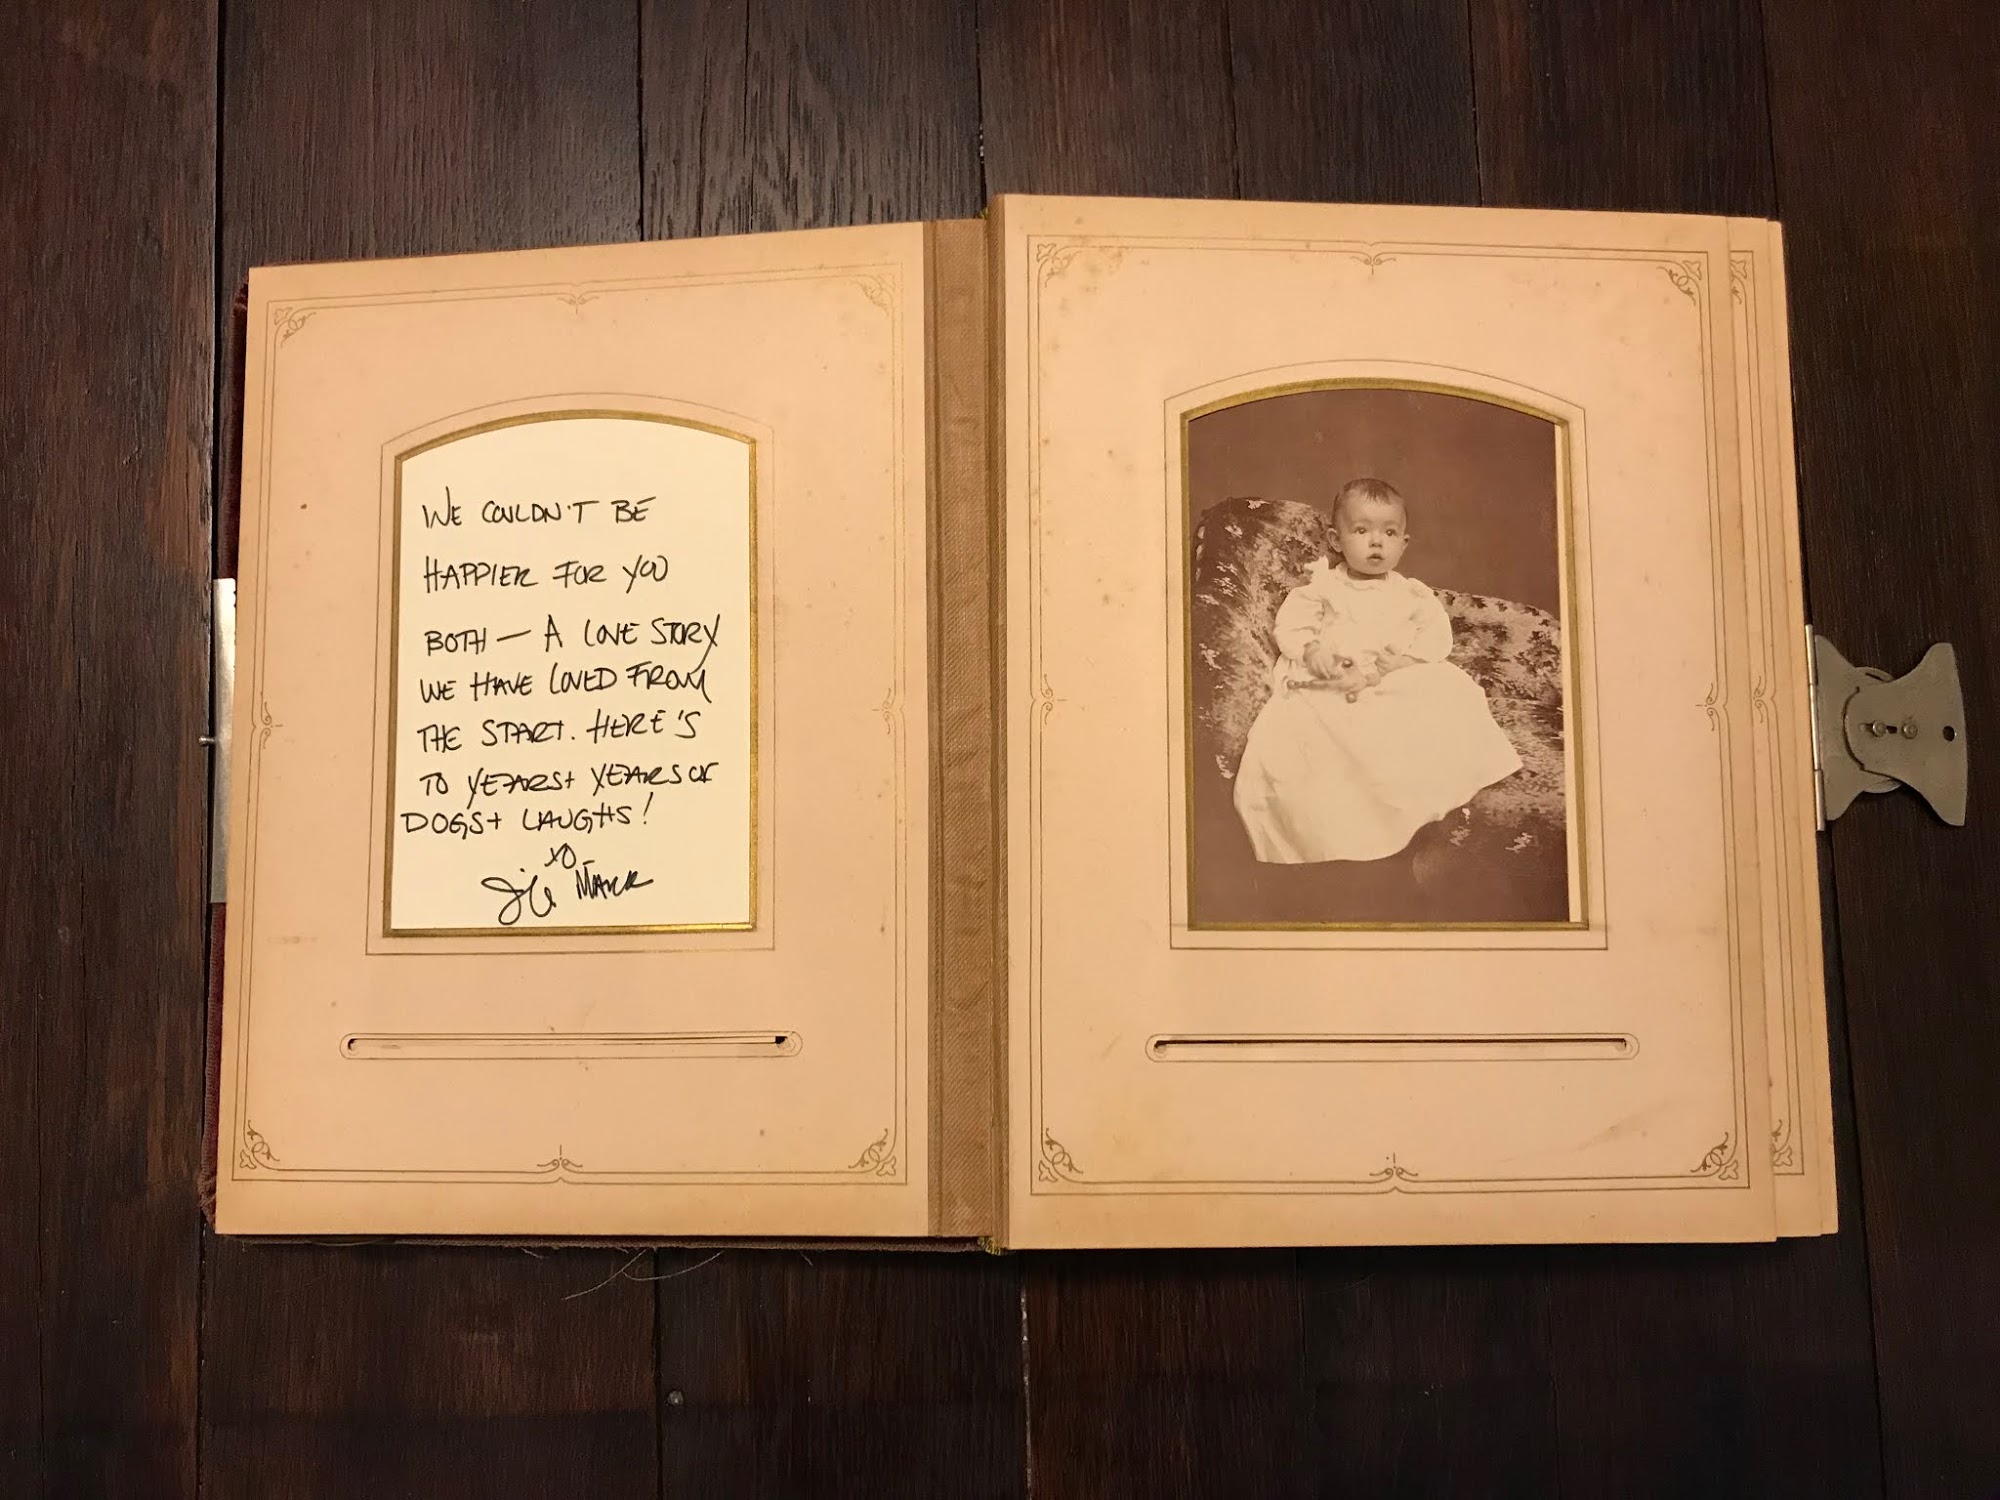 WE COULDN'T BE
HAPPIER FOR YOU
BOTH — A LOVE STORY
WE HAVE LOVED FROM
THE START. HERE'S
TO YEARS + YEARS OF
DOGS + LAUGHS!
XO
MARK